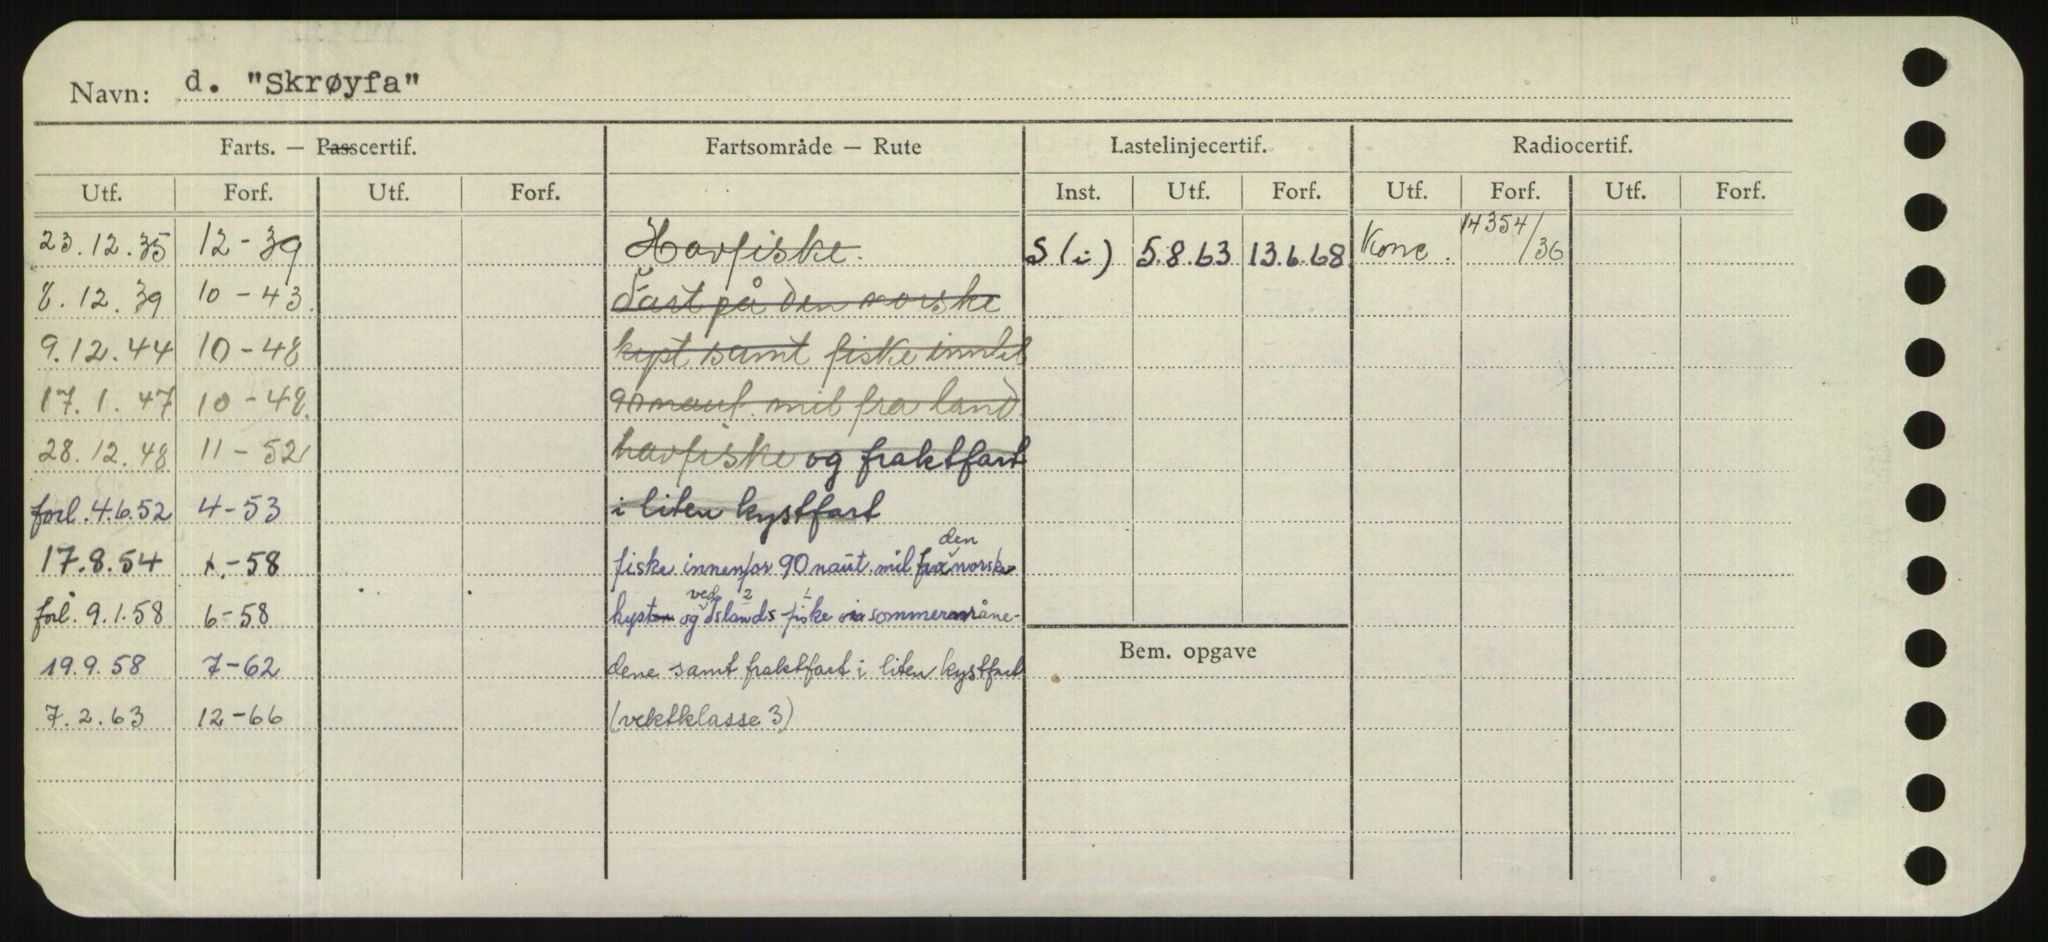 Navn: d. "Skrøyfa"
Farts. — Passcertif. Fartsområde — Rute Lastelinjecertif. Radiocertif.
Utf. Forf. Utf. Forf. Inst. Utf. Forf. Utf. Forf. Utf. Forf.
23.12.35 12-39 Havfiske. S (i) 5.8.63 13.6.68 14354/36
8.12.39 10-43. Fast på den norske
9.12.44 10-48 kyst samt fiske inntil
17.1.47 10-48. 90 naut. mil fra land
28.12.48 11-52 havfiske og fraktfart
forl. 4.6.52 4-53 i liten kystfart
17.8.54 -58 fiske innenfor 90 naut. mil fra den norske
forl. 9.1.58 6-58 kysten og ved Islands-fiske 2 1 sommermåne-
19.9.58 7-62 dene samt fraktfart i liten kystfart
7.2.63 12-66 (vektklasse 3)
Bem. opgave